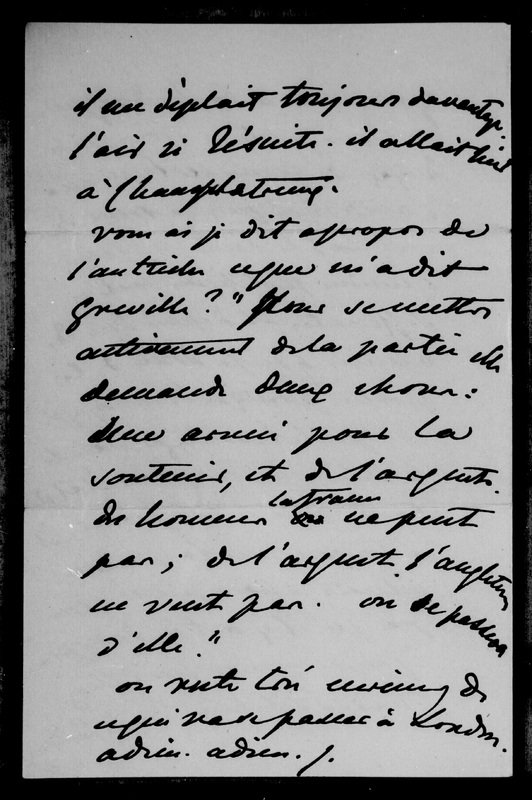 il me déplait toujours davantage.
l'air si Jésuite. il allait hier
à Champlatreux.
vous ai je dit apropos de
l'autriche ce que m'a dit
Greville? "Pour se mettre
activement de la partie elle
demande deux choses:
Une armée pour la
soutenir, et de l'argent.
des hommes la france ne peut
pas; de l'argent l'angleterre
ne veut pas. on se passera
d'elle."
on reste très curieux de
ce qui va se passer à Londres.
adieu. adieu.